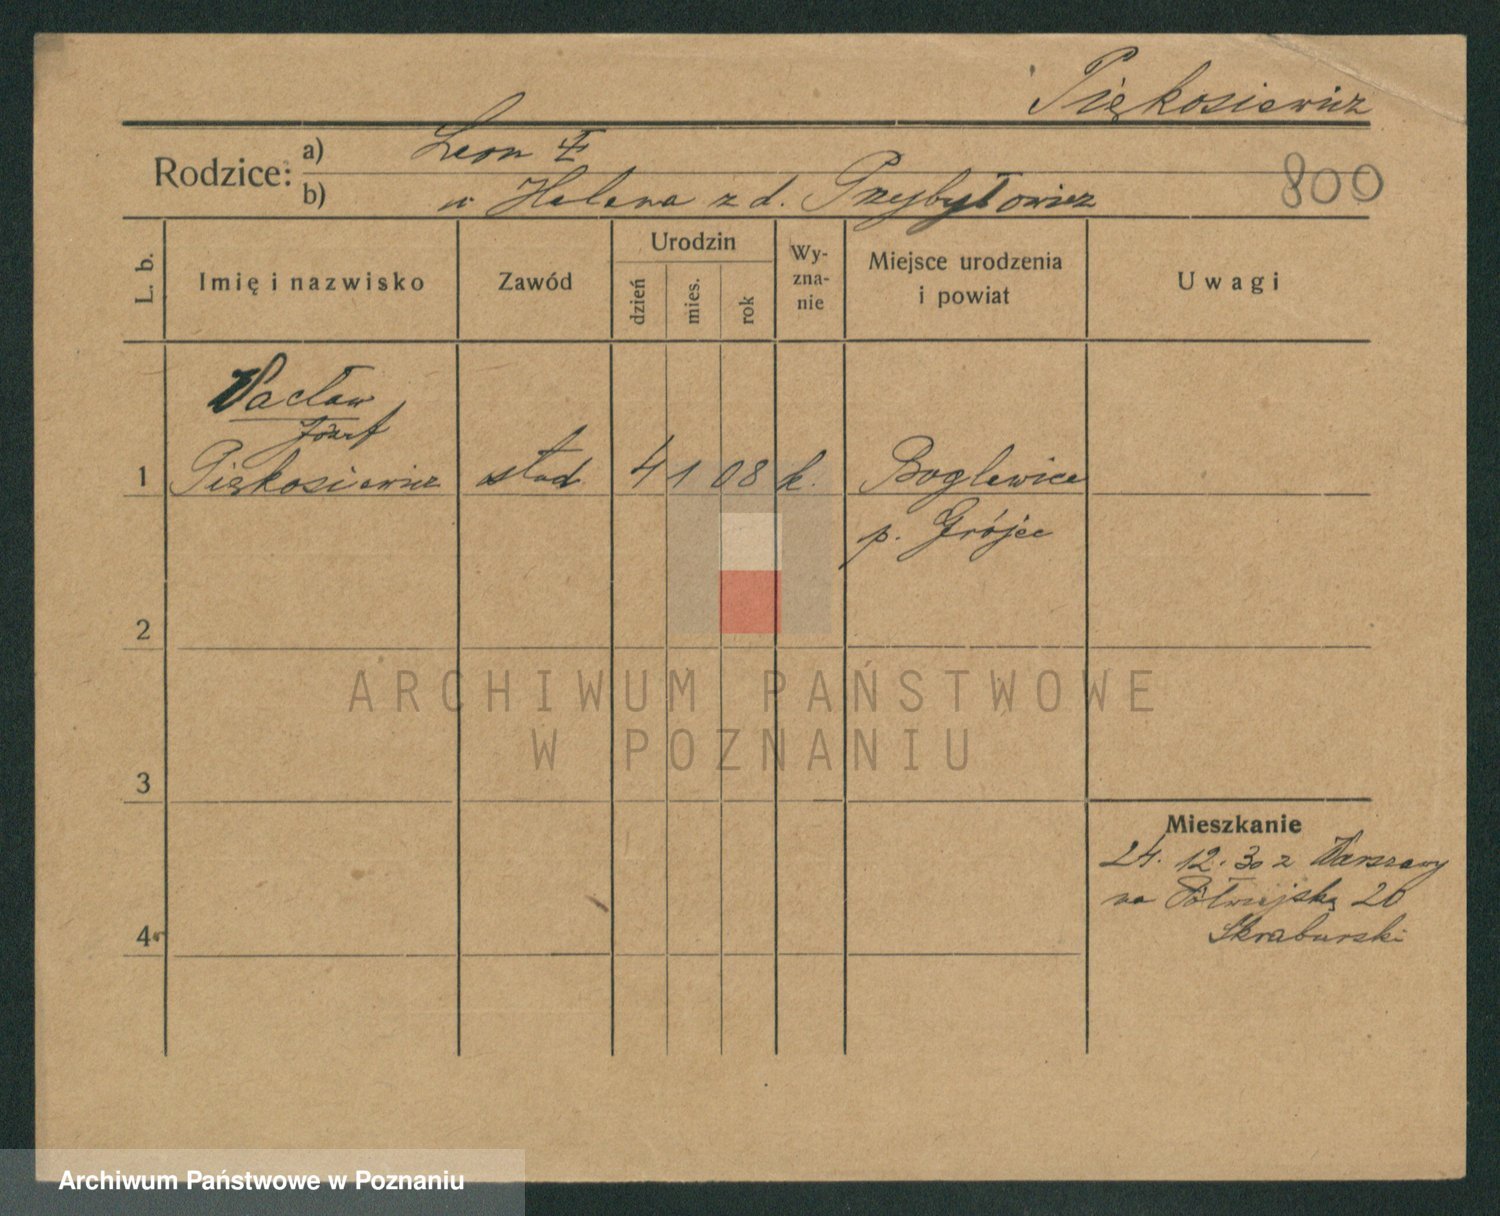 Piękosiewicz
Rodzice:
a) Leon
b) Helena z d. Przybyłowicz
800
L. b.
Imię i nazwisko
Zawód
Urodzin
dzień
mies.
rok
Wy-
zna-
nie
Miejsce urodzenia
i powiat
Uwagi
Wacław
Józef
1 Piękosiewicz stud. 4 1 08 k. Boglewice
p. Grójec
2
3
4
Mieszkanie
24. 12. 30 z Warszawy
na Półwiejską 20
Skraburski
ARCHIWUM PAŃSTWOWE
W POZNANIU
Archiwum Państwowe w Poznaniu